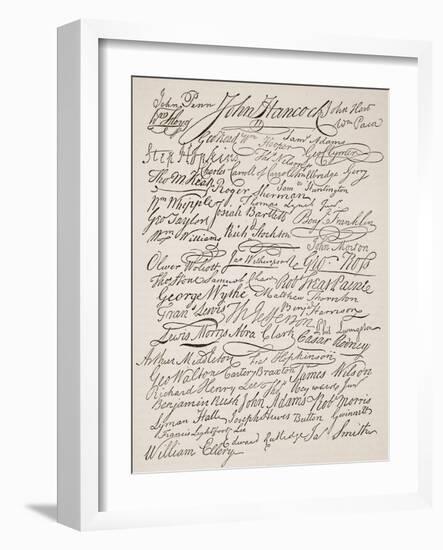 John Penn John Hancock John Hart
Wm Floyd Wm Paca
Geo Read Wm Hooper Sam Adams
Step Hopkins Geo Clymer
Charles Carroll of Carrollton Elbridge Gerry
Tho M:Kean Roger Sherman Sam Huntington
Wm Whipple Thomas Lynch Junr
Geo Taylor Josiah Bartlett Benj Franklin
Wm Williams Rich Stockton
John Morton
Oliver Wolcott Jno Witherspoon Geo Ross
Tho Stone Samuel Chase Rob Treat Paine
George Wythe Matthew Thornton
Fran Lewis Th Jefferson Benj Harrison
Lewis Morris Abra Clark Cæsar Rodney
Phil Livingston
Arthur Middleton Fras Hopkinson
Geo Walton Carter Braxton James Wilson
Richard Henry Lee Tho Heyward Junr
Benjamin Rush John Adams Rob Morris
Lyman Hall Joseph Hewes Button Gwinnett
Francis Lightfoot Lee
Edward Rutledge Jas Smith
William Ellery